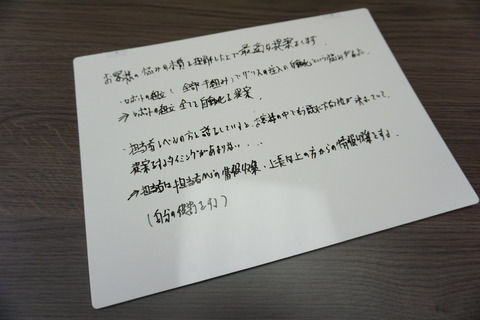 お客様の悩みの本質を理解した上で最高な提案をします
・ロボットの組立(全部手組み)してグリスの注入の自動化という悩みがあった
→ロボットの組立全てを自動化を提案
・担当者レベルの方と話をしていると、お客様の中でも方向性が決まってて
提案をするタイミングがあまりない・・・
→担当者は担当者からの情報収集・上長以上の方からの情報収集をする
(自分の役割をする)